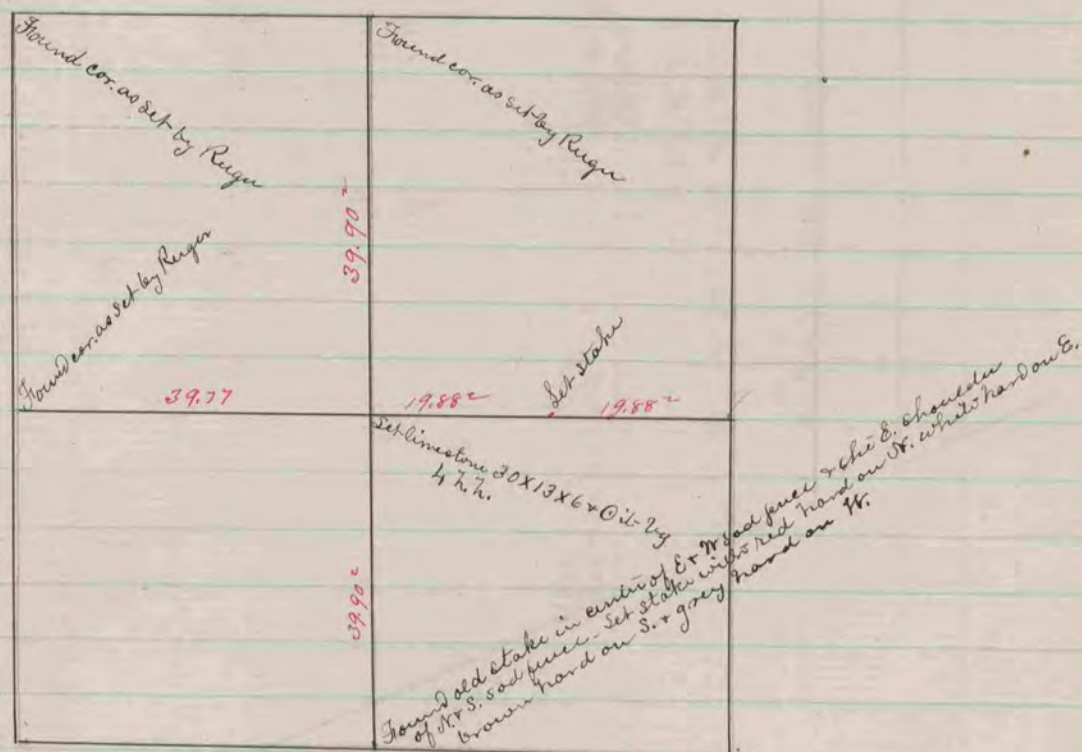 Found cor. as set by Ruger
Found cor. as set by Ruger
Found cor. as set by Ruger
39.90²
39.77
19.88²
Set stake
19.88²
Set limestone 30x13x6 +
4
39.90²
Found old stake in centre of E + W sod fence & the E. shoulder
of N + S. sod fence - Set stake with red hard on N. white hard on E.
brown hard on S. + grey hard on W.